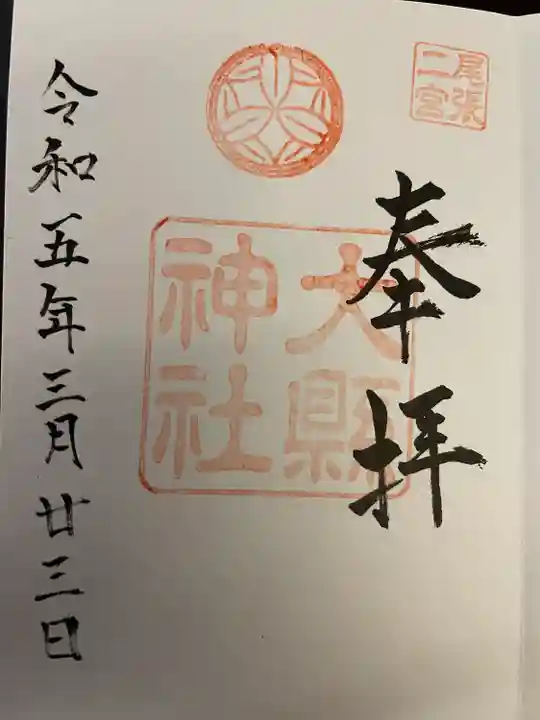 尾張
二宮
奉拝
大縣
神社
令和五年三月廿三日